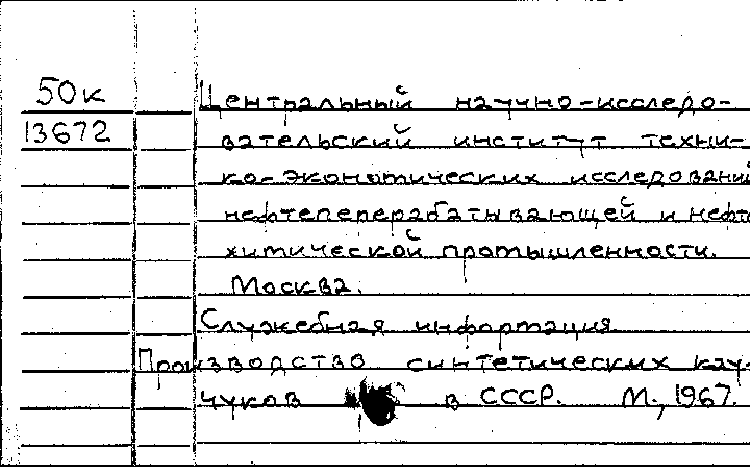 50к
13672
Центральный научно-исследо-
вательский институт техни-
ко-экономических исследований
нефтеперерабатывающей и нефте
химической промышленности.
Москва.
Служебная информация
Производство синтетических кау-
чуков в СССР. М., 1967.